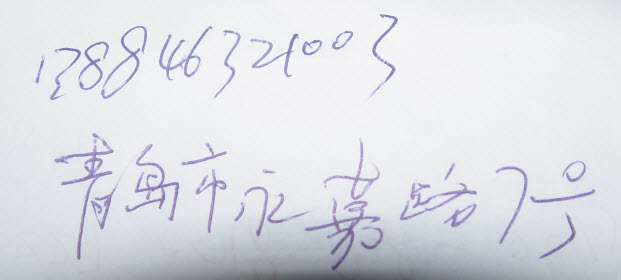 138846321003
青岛市永嘉路7号